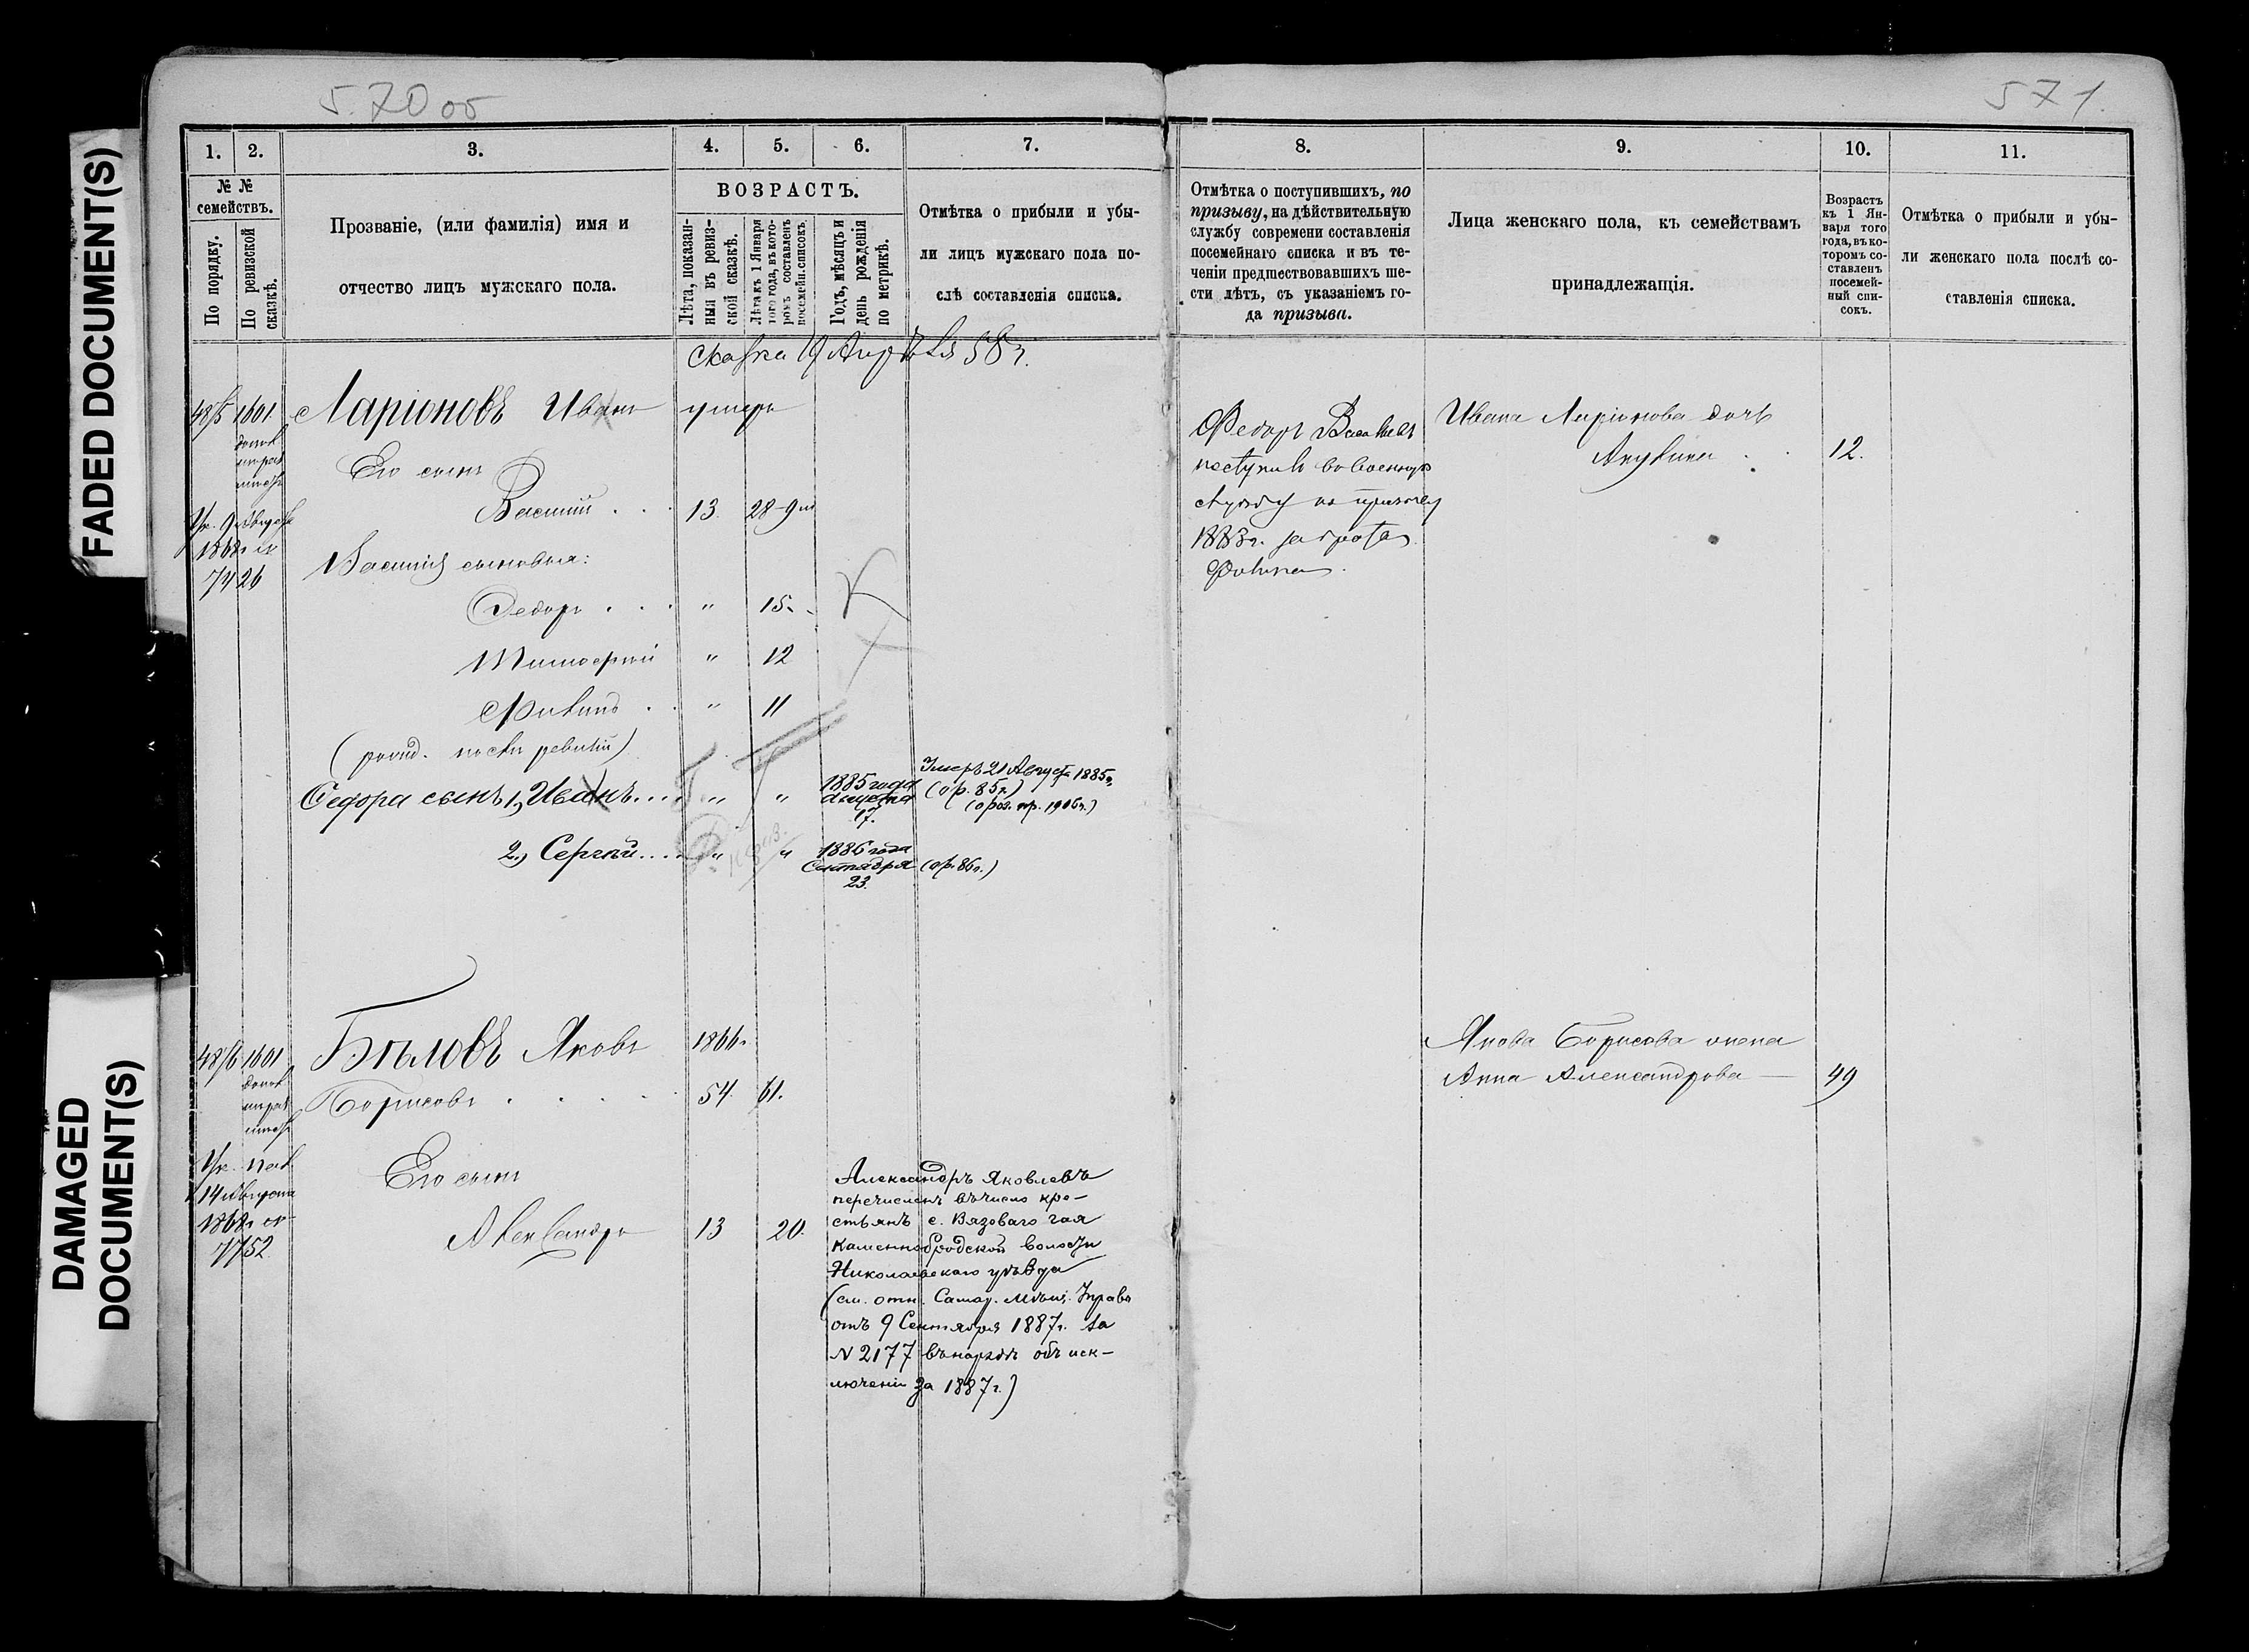 FADED DOCUMENT(S)
DAMAGED
DOCUMENT(S)
570 об
571.
1. 2. 3. 4. 5. 6. 7. 8. 9. 10. 11.
№ №
семействъ.
По порядку.
По ревизской
сказкѣ.
Прозваніе, (или фамилія) имя и
отчество лицъ мужскаго пола.
ВОЗРАСТЪ.
Лѣта, показан-
ныя въ ревиз-
ской сказкѣ.
Лѣта къ 1 Января
того года, въ кото-
ромъ составленъ
посемейн. списокъ.
Годъ, мѣсяцъ и
день рожденія
по метрикѣ.
Отмѣтка о прибыли и убы-
ли лицъ мужскаго пола по-
слѣ составленія списка.
Отмѣтка о поступившихъ, по
призыву, на дѣйствительную
службу современи составленія
посемейнаго списка и въ те-
ченіи предшествовавшихъ ше-
сти лѣтъ, съ указаніемъ го-
да призыва.
Лица женскаго пола, къ семействамъ
принадлежащія.
Возрастъ
къ 1 Ян-
варя того
года, въ ко-
торомъ со-
ставленъ
посемей-
ный спи-
сокъ.
Отмѣтка о прибыли и убы-
ли женскаго пола послѣ со-
ставленія списка.
Сказка 19 Апрѣля 58 г.
1601 Ларіоновъ Иванъ умеръ
Его сынъ
Василій . . . 13. 28
Ук. 9 Августа
1868 г.
7426
Василія сыновья:
Федоръ . . . " 15.
Тимофей " 12
Филипъ . . " 11
(рожд. послѣ ревизіи)
Федора сынъ 1, Иванъ.... " " 1885 года
Августа
17.
Умеръ 21 Августа 1885 г.
(ор. 85 г.)
2, Сергѣй.... " " 1886 года
Сентября
23.
(ор. 86 г.)
Федоръ Васильевъ
поступилъ въ военную
службу по призыву
1883 г.
Ивана Ларіонова дочь
Акулина . . 12.
1601 Бѣловъ Яковъ 1866 г.
Борисовъ . . . . . 54. 61.
14 Августа
1868 г.
7752.
Его сынъ
Александръ 13 20.
Александръ Яковлевъ
перечисленъ въ число кре-
стьянъ с. Вязоваго Гая
Каменнобродской волости
Николаевскаго уѣзда
(см. отн. Самар. Мѣщ. Управы
отъ 9 Сентября 1887 г. за
N 2177 въ нарядѣ объ иск-
люченіи за 1887 г.)
Якова Борисова жена
Анна Александрова 49